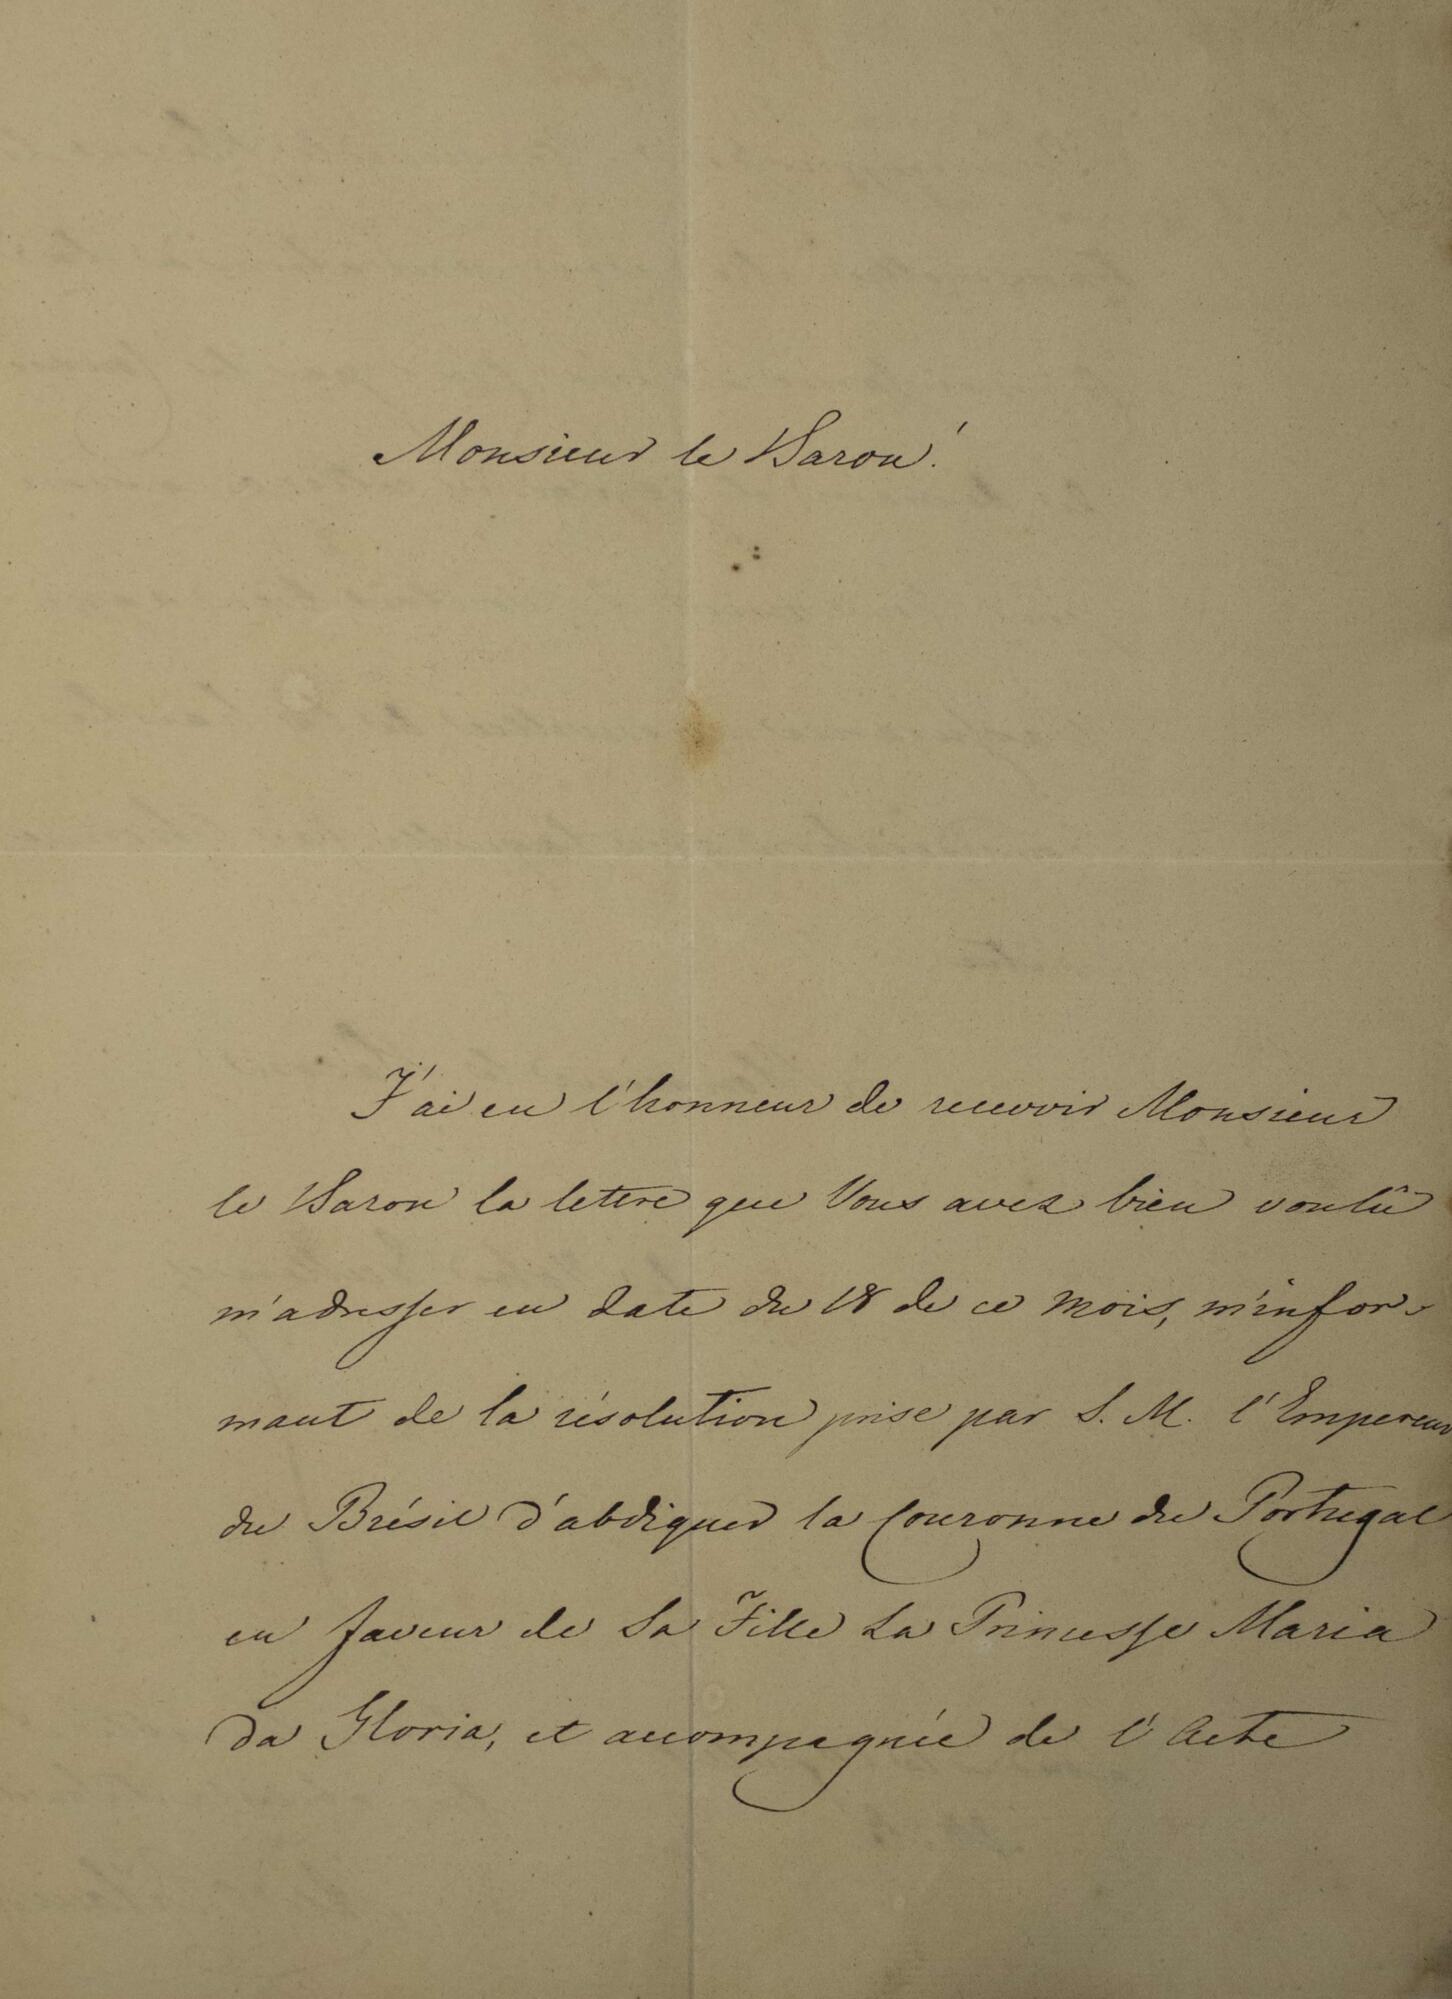 Monsieur le Baron!
J'ai eu l'honneur de recevoir Monsieur
le Baron la lettre que Vous avez bien voulû
m'adresser en date du 18 de ce mois, m'infor-
mant de la résolution prise par S. M. l'Empereur
du Brésil d'abdiquer la Couronne du Portugal
en faveur de Sa Fille La Princesse Maria
da Gloria, et accompagnée de l'Acte